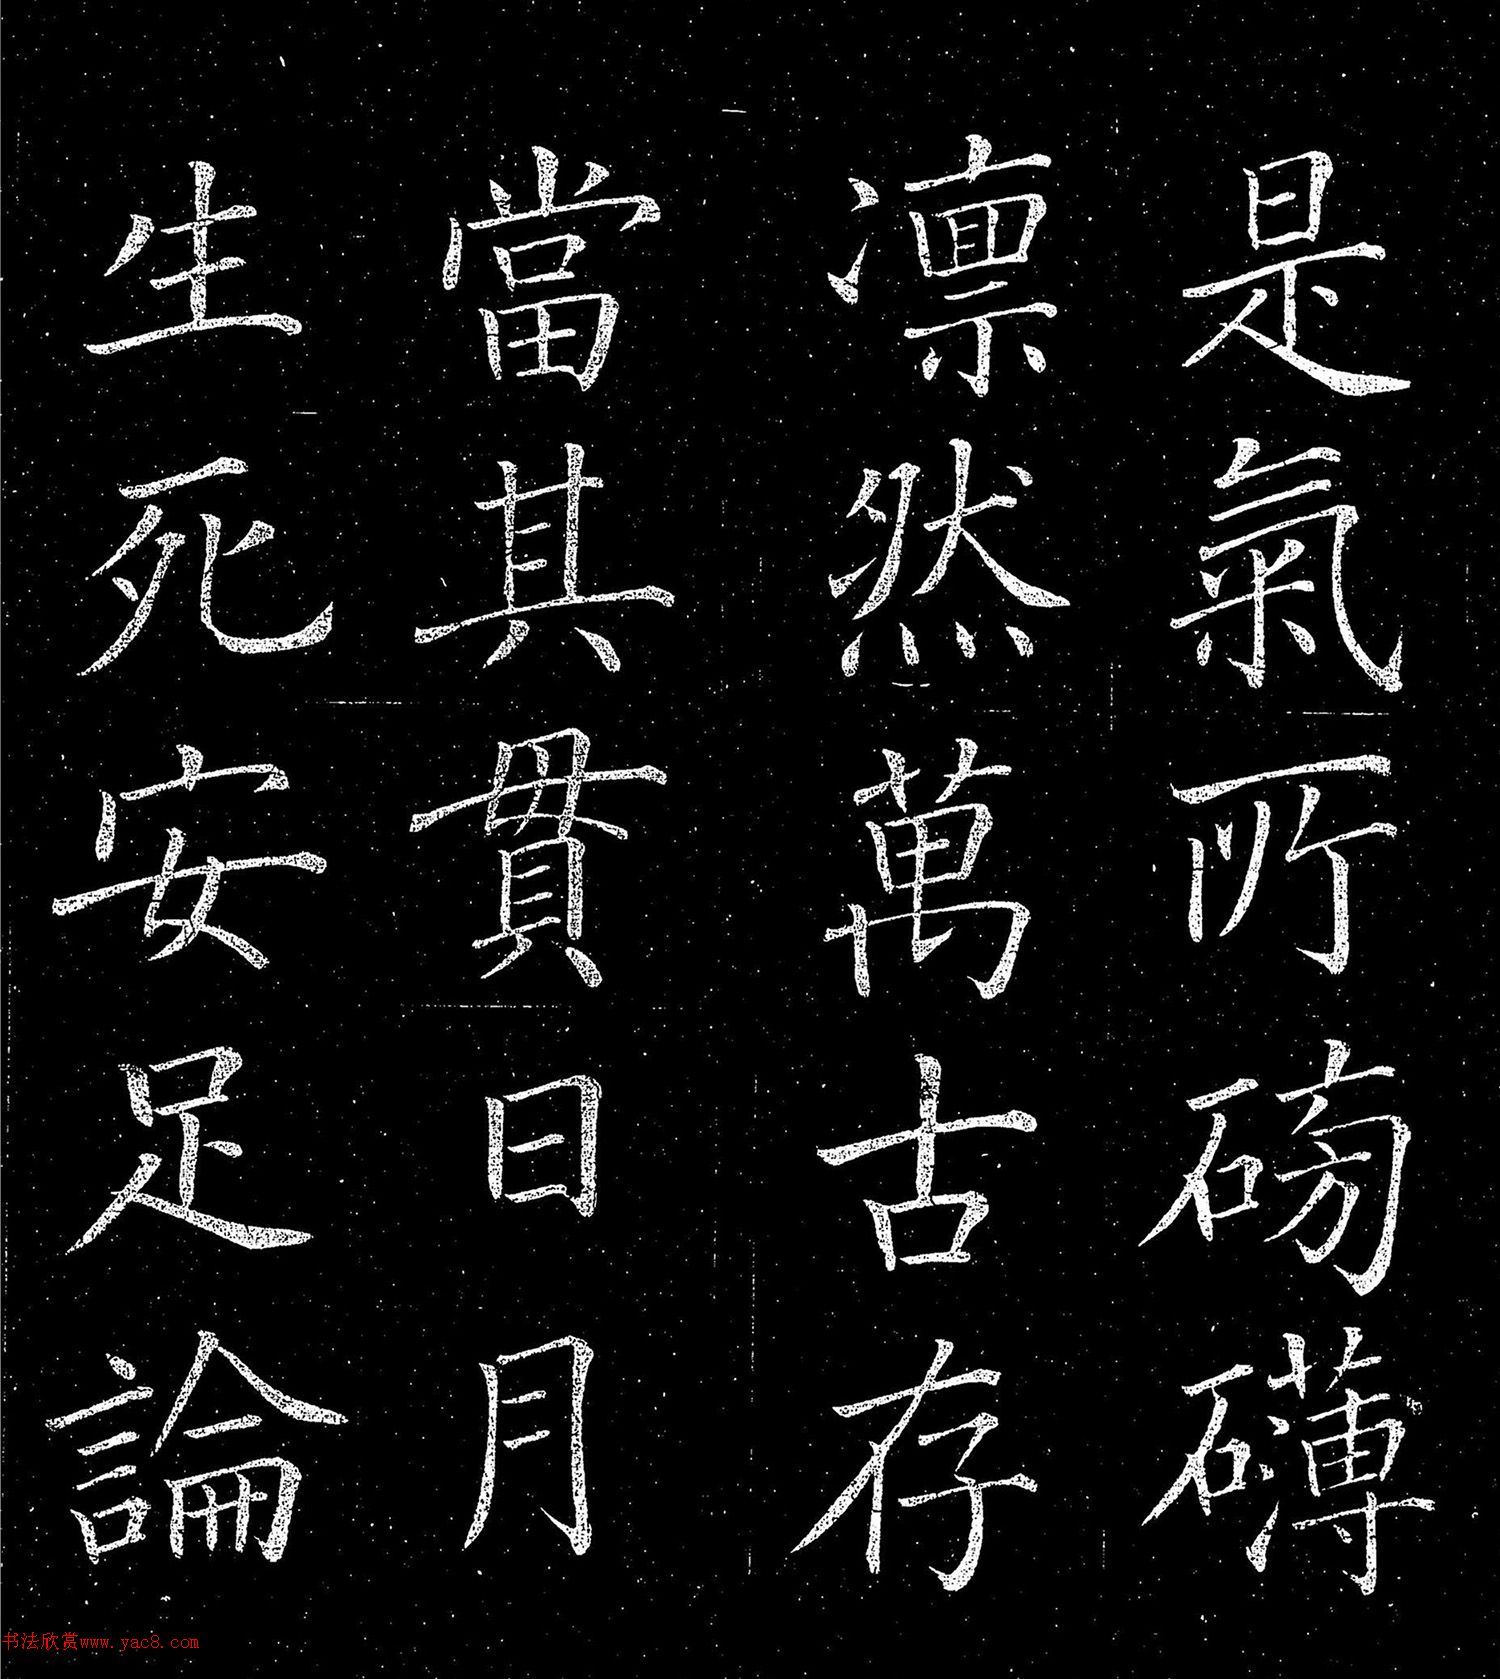 是氣所磅礴
凛然萬古存
當其貫日月
生死安足論
书法欣赏www.yac8.com